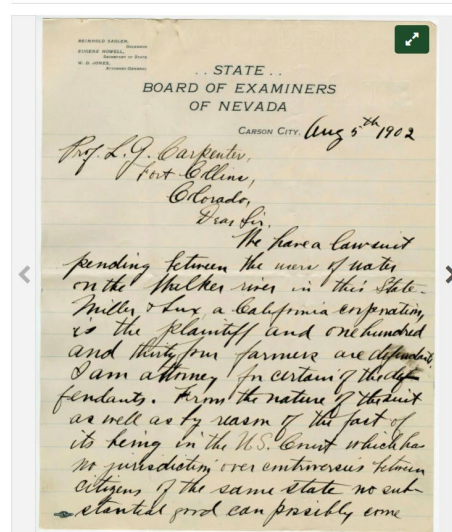 REINHOLD SADLER,
GOVERNOR
EUGENE HOWELL,
SECRETARY OF STATE
W. D. JONES,
ATTORNEY GENERAL
. . STATE . .
BOARD OF EXAMINERS
OF NEVADA
CARSON CITY, Aug 5th 1902
Prof. L. G. Carpenter,
Fort Collins,
Colorado,
Dear Sir.
We have a lawsuit
pending between the users of water
on the Walker river in this State.
Miller & Lux, a California corporation,
is the plaintiff and one hundred
and thirty four farmers are defendants
I am attorney for certain of the def
fendants. From the nature of the suit
as well as by reason of the fact of
its being in the U.S. Court which has
no jurisdiction over controversies between
citizens of the same state no sub-
stantial good can possibly come